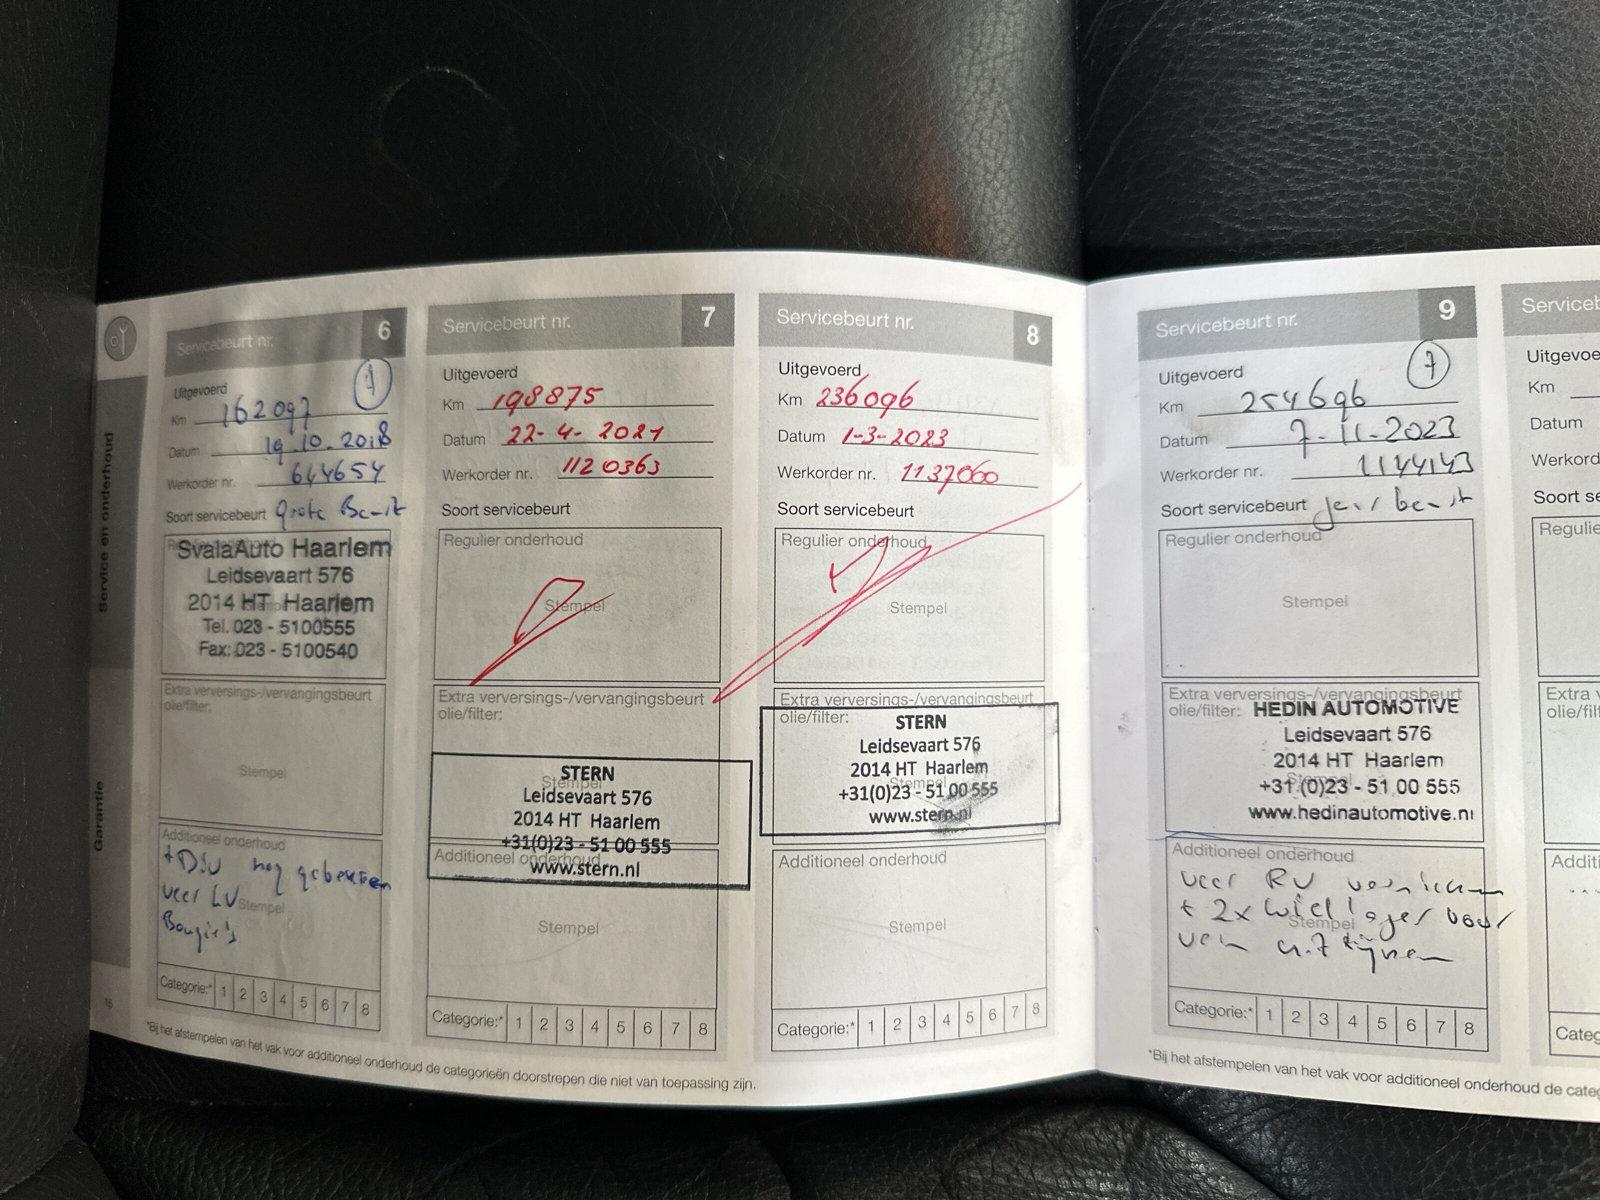 Service en onderhoud
Garantie
16
Servicebeurt nr. 6
Uitgevoerd
Km 162097
Datum 19.10.2018
Werkorder nr. 644654
Soort servicebeurt Grote Beurt
Regulier onderhoud
Stempel
SvalaAuto Haarlem
Leidsevaart 576
2014 HT Haarlem
Tel. 023 - 5100555
Fax: 023 - 5100540
Extra verversings-/vervangingsbeurt
olie/filter:
Stempel
Additioneel onderhoud
+ DSU nog gebeuren
veer LV
Stempel
Bougie's
Categorie:* 1 2 3 4 5 6 7 8
Servicebeurt nr. 7
Uitgevoerd
Km 198875
Datum 22-4-2021
Werkorder nr. 1120363
Soort servicebeurt
Regulier onderhoud
Stempel
Extra verversings-/vervangingsbeurt
olie/filter:
Stempel
STERN
Leidsevaart 576
2014 HT Haarlem
+31(0)23 - 51 00 555
www.stern.nl
Additioneel onderhoud
Stempel
Categorie:* 1 2 3 4 5 6 7 8
Servicebeurt nr. 8
Uitgevoerd
Km 236096
Datum 1-3-2023
Werkorder nr. 1137060
Soort servicebeurt
Regulier onderhoud
Stempel
Extra verversings-/vervangingsbeurt
olie/filter:
STERN
Leidsevaart 576
2014 HT Haarlem
Stempel
+31(0)23 - 51 00 555
www.stern.nl
Additioneel onderhoud
Stempel
Categorie:* 1 2 3 4 5 6 7 8
*Bij het afstempelen van het vak voor additioneel onderhoud de categorieën doorstrepen die niet van toepassing zijn.
Servicebeurt nr. 9
7
Uitgevoerd
Km 254696
Datum 7-11-2023
Werkorder nr. 1144143
Soort servicebeurt beurt
Regulier onderhoud
Stempel
Extra verversings-/vervangingsbeurt
olie/filter:
HEDIN AUTOMOTIVE
Leidsevaart 576
2014 HT Haarlem
Stempel
+31 (0)23 - 51 00 555
www.hedinautomotive.nl
Additioneel onderhoud
veer RV
+ 2x wiellager voor
Stempel
Categorie:* 1 2 3 4 5 6 7 8
*Bij het afstempelen van het vak voor additioneel onderhoud de categ
Serviceb
Uitgevoe
Km
Datum
Werkord
Soort se
Regulie
Extra v
olie/filt
Additi
Categ